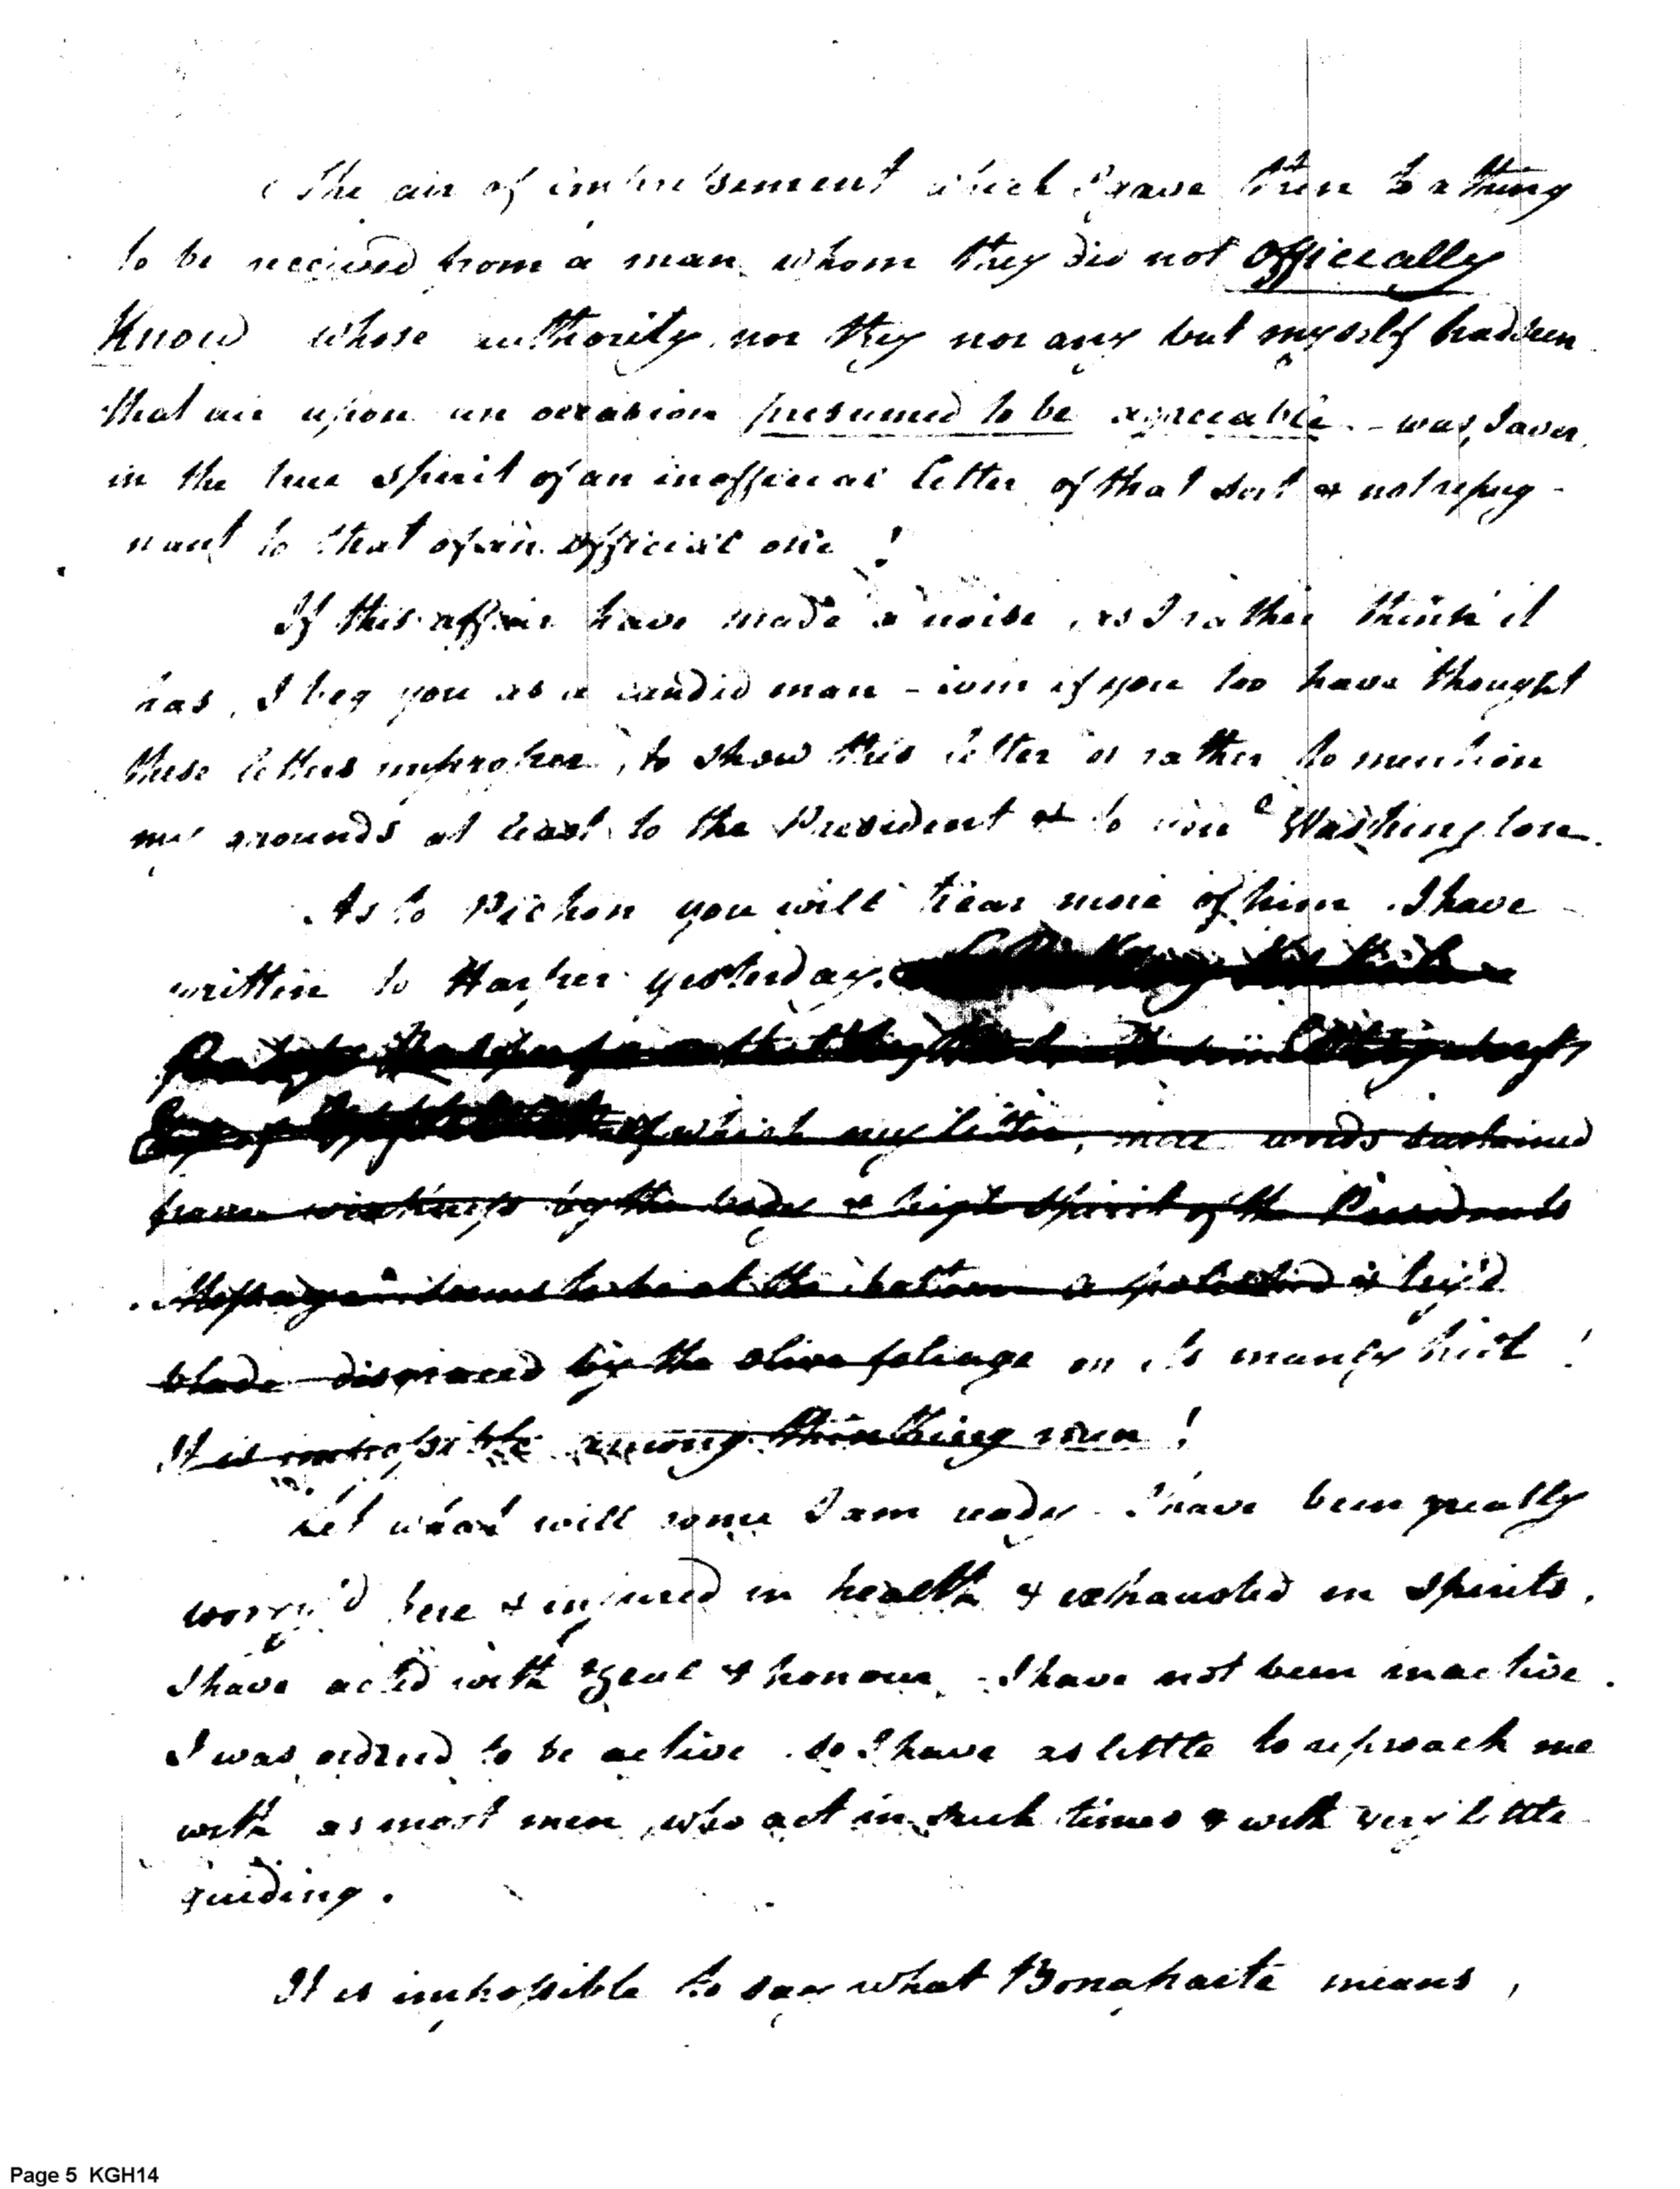 The air of empressement which I gave then to a thing
to be received from a man whom they did not officially
Know whose authority nor they nor any but myself had seen
that air upon an occasion presumed to be agreeable - was, I aver,
in the true spirit of an inofficial letter of that sort & not repug-
nant to that of an official one!
If this affair have made a noise, as I rather think it
has, I beg you as a candid man - even if you too have thought
these letters improper, to show this letter or rather to mention
my grounds at least to the President & to Washington.
As to Pichon you will hear more of him. I have
written to Harper yesterday.
of which my letter, mere words sustained
from by the body & high spirit of the Presidents
Message seems to be at the bottom a polished &
blade disgraced by the olive foliage on its manly hilt!
It is impossible among thinking men!
Let what will come I am ready - I have been greatly
worry'd here & injured in health & exhausted in spirits.
I have acted with zeal & honour. - I have not been inactive.
I was ordered to be active so I have as little to reproach me
with as most men who act in such times & with very little
guiding.
It is impossible to say what Bonaparte means,
Page 5 KGH14